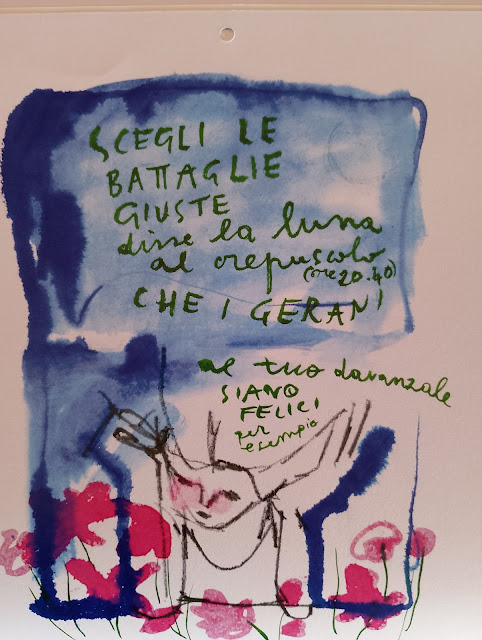 SCEGLI LE
BATTAGLIE
GIUSTE
disse la luna
al crepuscolo
(ore 20.40)
CHE I GERANI
al tuo davanzale
SIANO
FELICI
per
esempio